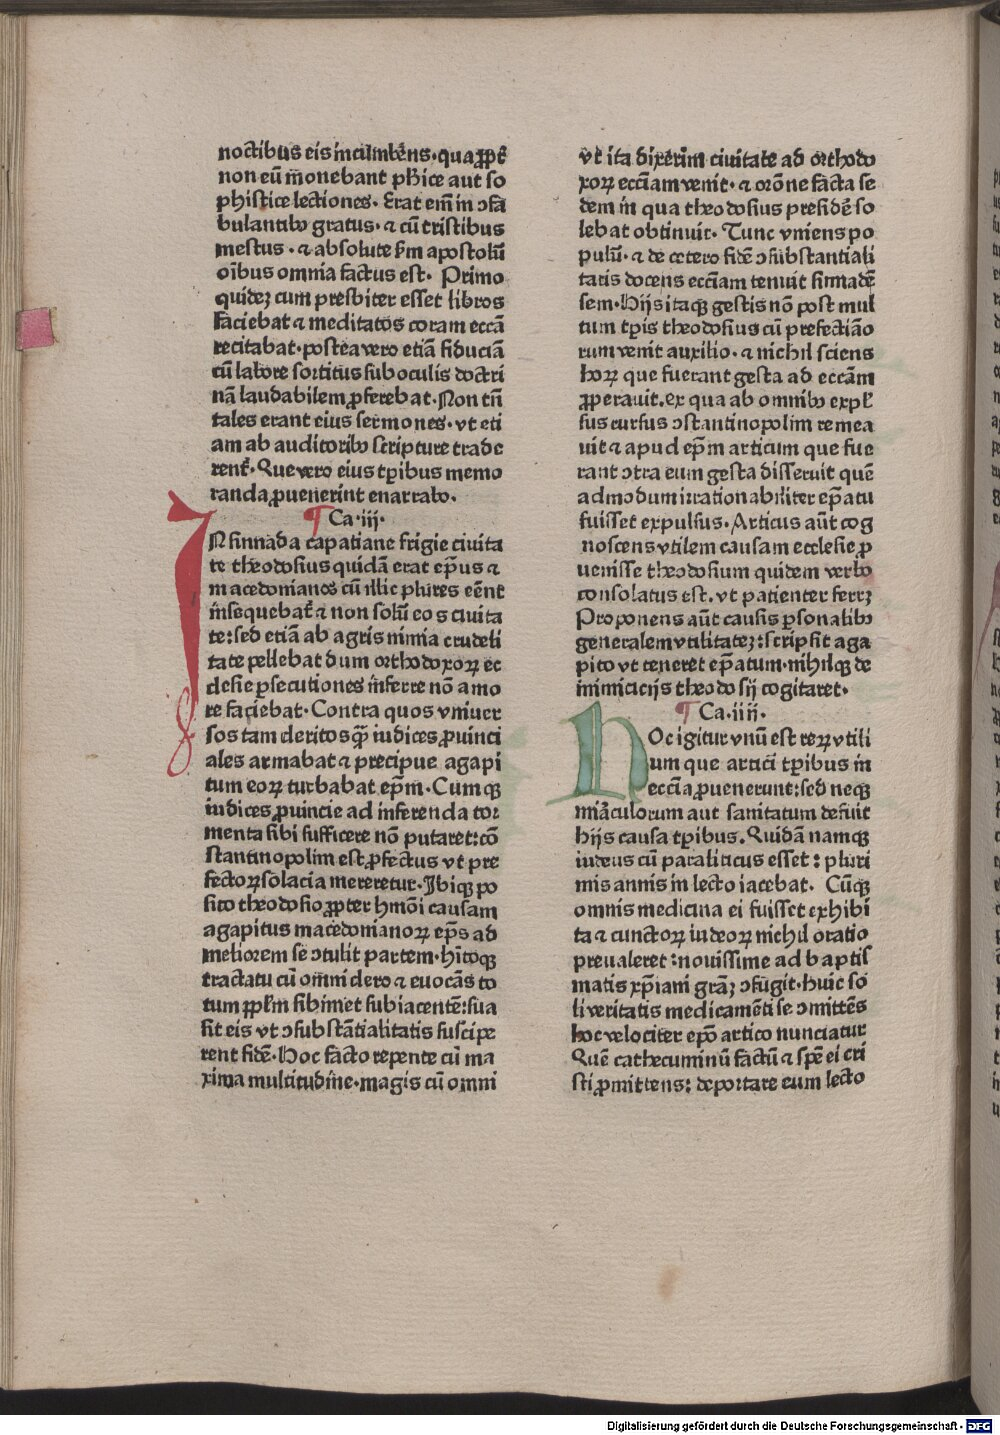 noctibus eis incūmbēns·qua ꝓpt̄
non eū m̄onebant phīce aut so
phistice lectiones· Erat em̄ in ɔfa
bulantibꝰ gratus· ⁊ cū tristibus
mestus · ⁊ absolute s̄m apostolū
oībus omnia factus est· Primo
quideꝫ cum presbiter esset libros
faciebat ⁊ meditatos coram ecc̄a
recitabat·postea vero etiā fiduciā
cū labore sortitus sub oculis doctri
nā laudabilem ꝓferebat·Non tn̄
tales erant eius sermones·vt eti
am ab auditoribꝰ scripture trade
rent̄·Que vero eius tp̄ibus memo
randa ꝓuenerint enarrabo·
¶ Ca·iij·
IN sinnada capatiane frigie ciuita
te theodosius quidā erat ep̄us ⁊
macedonianos cū illic plures eēnt
īnsequebat̄ ⁊ non solū eos ciuita
te:sed etiā ab agris nimia crudeli
tate pellebat dum orthodoxoꝝ ec
clesie ꝑsecutiones inferre nō amo
re faciebat·Contra quos vniuer
sos tam clericos qꝫ iudices ꝓuinci
ales armabat ⁊ precipue agapi
tum eoꝝ turbabat ep̄m·Cumqꝫ
iudices ꝓuincie ad inferenda tor
menta sibi sufficere nō putaret:cō
stantinopolim est ꝓfectus vt pre
fectoꝝ solacia mereretur·Ibiqꝫ po
sito theodosio ꝓpter hmōi causam
agapitus macedonianoꝝ ep̄s ad
meliorem se ɔtulit partem·hītoqꝫ
tractatu cū omni clero ⁊ euocās to
tum ꝓp̄lm sibimet subiacentē:sua
sit eis vt ɔsubstātialitatis suscipe
rent fidē·Hoc facto repente cū ma
xima multitudīne·magis cū omni
vt ita dixerim ciuitate ad orthodo
xoꝝ eccīam venit·⁊ orōne facta se
dem in qua theodosius presidē so
lebat obtinuit· Tunc vniens po
pulū·⁊ de cetero fidē ɔsubstantiali
tatis docens eccīam tenuit sinnadē
sem·Hijs itaqꝫ gestis nō post mul
tum tp̄is theodosius cū prefectiāo
rum venit auxilio·⁊ nichil sciens
hoꝝ que fuerant gesta ad eccīam
ꝓperauit.ex qua ab omnibꝰ expl̄
sus rursus ɔstantinopolim remea
uit ⁊ apud ep̄m articum que fue
rant ɔtra eum gesta disseruit quē
admodum irrationabiliter ep̄atu
fuisset expulsus·Articus aūt cog
noscens vtilem causam ecclesie ꝓ
uenisse theodosium quidem verbo
consolatus est.vt patienter ferreꝫ
Proponens aūt causis ꝑsonalibꝰ
generalem vtilitateꝫ:scripsit aga
pito vt teneret ep̄atum·nihilqꝫ de
inimicicijs theodosij cogitaret·
¶ Ca·iiij·
HOc igitur vnū est reꝝ vtili
um que artici tp̄ibus in
eccīa ꝓuenerunt:sed neqꝫ
miāculorum aut sanitatum defuit
hijs causa tp̄ibus.Quidā namqꝫ
iudeus cū paraliticus esset : pluri
mis annis in lecto iacebat· Cūqꝫ
omnis medicina ei fuisset exhibi
ta ⁊ cunctoꝝ iudeoꝝ nichil oratio
preualeret:nouissime ad baptis
matis xp̄iani grāꝫ ɔfugit·huic so
li veritatis medicamēti se ɔmittēs
hoc velociter ep̄o artico nunciatur
Quē cathecuminū factū ⁊ spē ei cri
sti ꝓmittens: deportare eum lecto
Digitalisierung gefördert durch die Deutsche Forschungsgemeinschaft - DFG